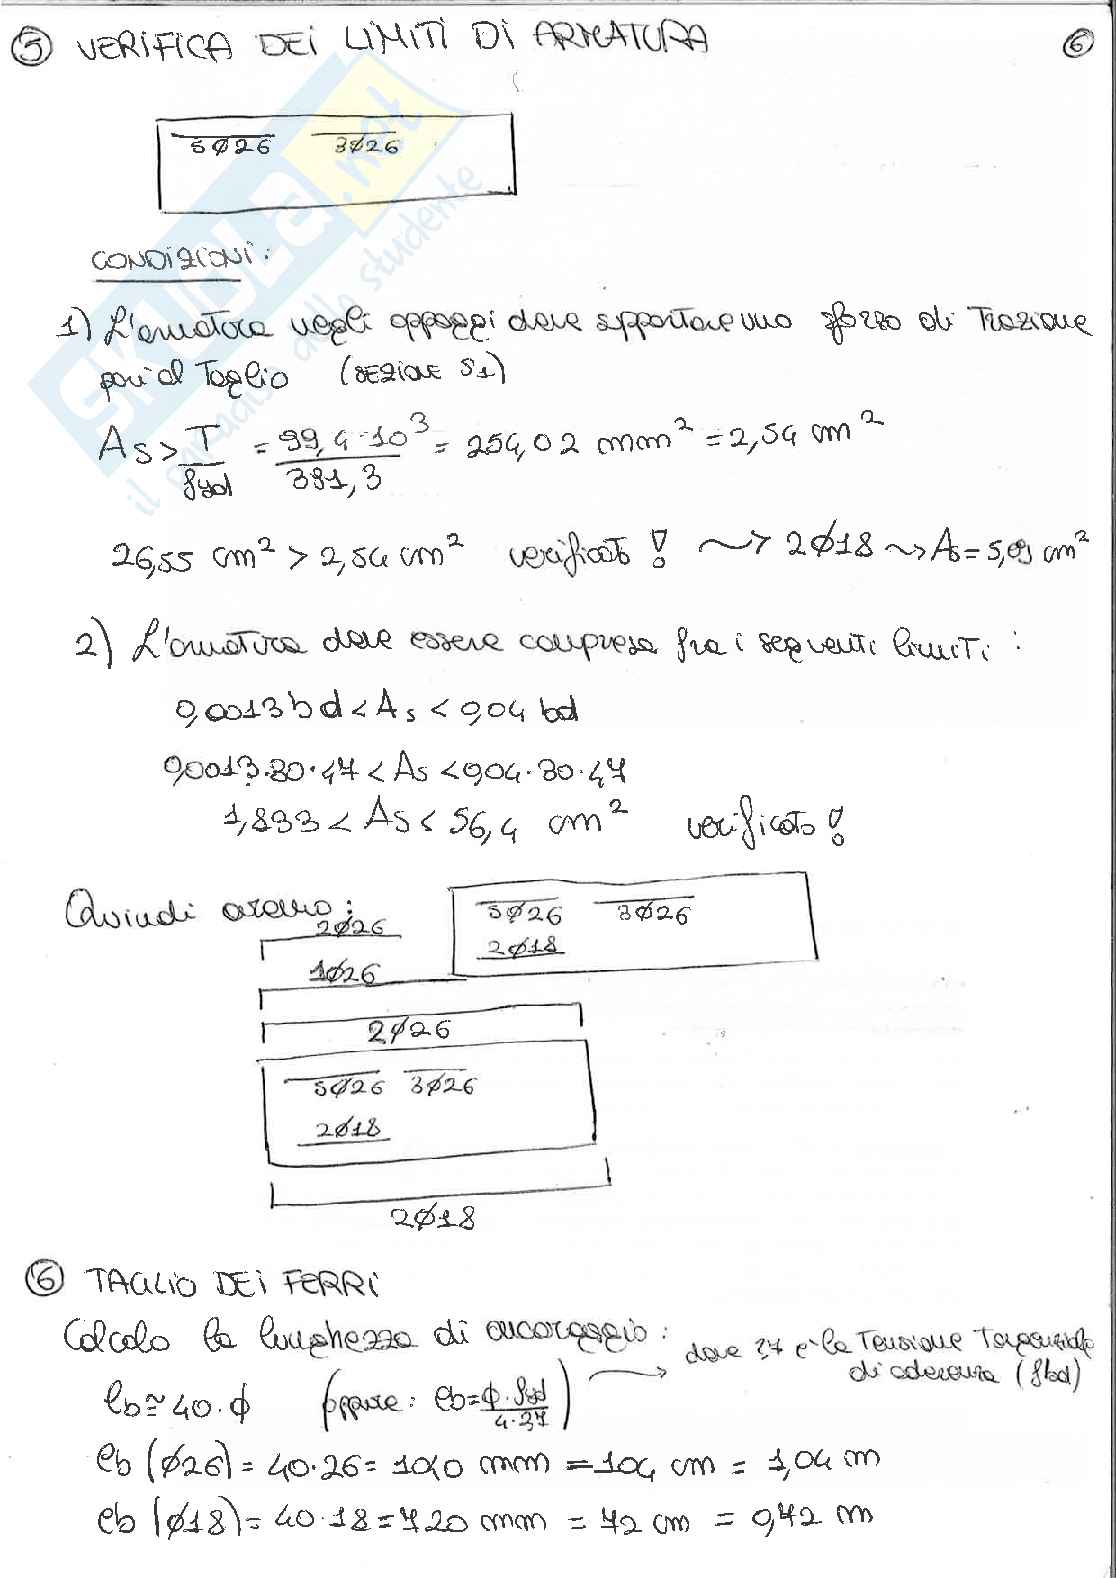 ⑤ VERIFICA DEI LIMITI DI ARMATURA
⑥
5Ø26 3Ø26
CONDIZIONI:
1) L'armatura negli appoggi deve sopportare uno sforzo di Trazione
pari al Taglio (SEZIONE S1)
As > T/fyd = 99,4·10³/391,3 = 254,02 mm² = 2,54 cm²
26,55 cm² > 2,54 cm² verificato! ⟿ 2Ø18 ⟿ As = 5,09 cm²
2) L'armatura deve essere compresa fra i seguenti limiti:
0,0013 bd < As < 0,04 bd
0,0013·30·47 < As < 0,04·30·47
1,833 < As < 56,4 cm² verificato!
Quindi avremo:
5Ø26 3Ø26
2Ø18
2Ø26
1Ø26
2Ø26
5Ø26 3Ø26
2Ø18
2Ø18
⑥ TAGLIO DEI FERRI
Calcolo la lunghezza di ancoraggio:
lb ≅ 40·ϕ (oppure: lb = ϕ·fyd/4·37) → dove 37 è la Tensione Tangenziale
di aderenza (fbd)
lb (Ø26) = 40·26 = 1040 mm = 104 cm = 1,04 m
lb (Ø18) = 40·18 = 720 mm = 72 cm = 0,72 m
SKUOLA.net
il paradiso dello studente